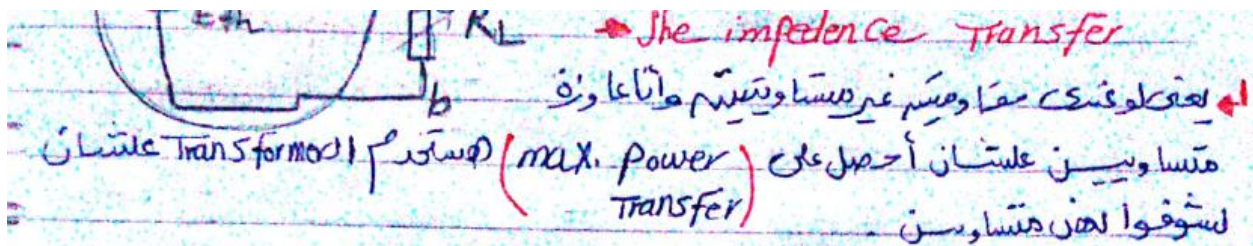 Eth
RL
→ The impedence Transfer
b
يعني لو عندى مقاومتين غير متساويتين وأنا عاوزة
متساويين علشان أحصل على (max. power Transfer) هستخدم الـ Transformer علشان
يشوفوا بعض متساويين